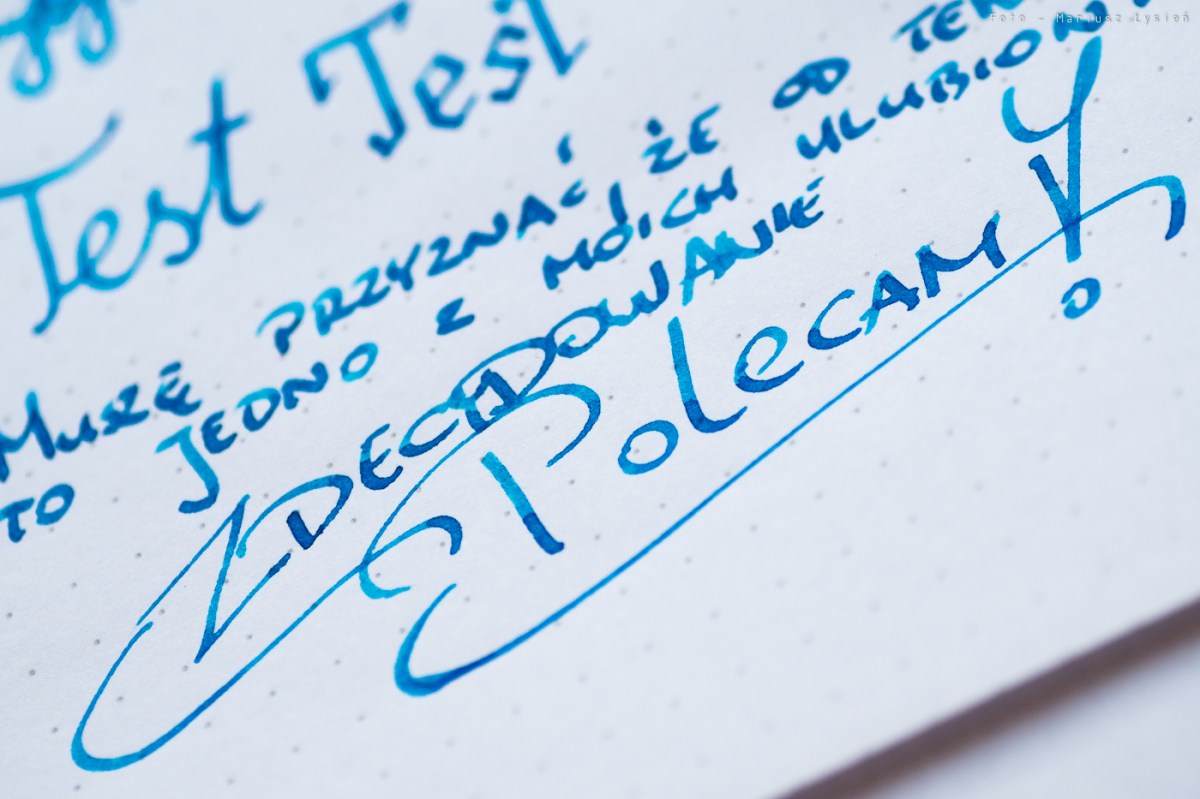 Foto - Mariusz Łysień
Test Test
MUSZĘ PRZYZNAĆ, ŻE OD
TO JEDNO Z MOICH
ZDECYDOWANIE
PoleCAM!